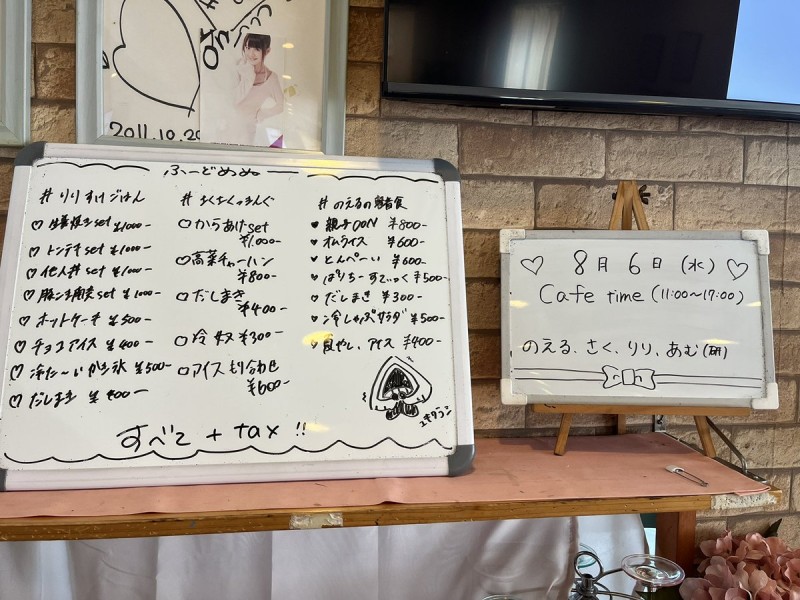 2011.10.29
ふーどめぬー
# りりすけごはん
♡ 生姜焼きset ¥1000-
♡ トンテキset ¥1000-
♡ 他人丼set ¥1000-
♡ 豚キムチ set ¥1000-
♡ ホットケーキ ¥500-
♡ チョコアイス ¥400-
♡ 冷た〜いかき氷 ¥500-
♡ だしまき ¥400-
# さくちんっきんぐ
♡ からあげset
¥1,000-
♡ 高菜チャーハン
¥800-
□ だしまき
¥400-
□ 冷奴 ¥300-
♡ アイスもり合わせ
¥600-
# のえるの軽食
♥ 親子DON ¥800-
♥ オムライス ¥600-
♥ とんぺーい ¥600-
♥ ぽりちーすてぃっく ¥500-
♥ だしまき ¥300-
♥ 冷しゃぶサラダ ¥500-
♥ アイス ¥400-
すべて + tax !!
♡ 8月6日(水) ♡
Cafe time (11:00〜17:00)
のえる、さく、りり、あむ(研)